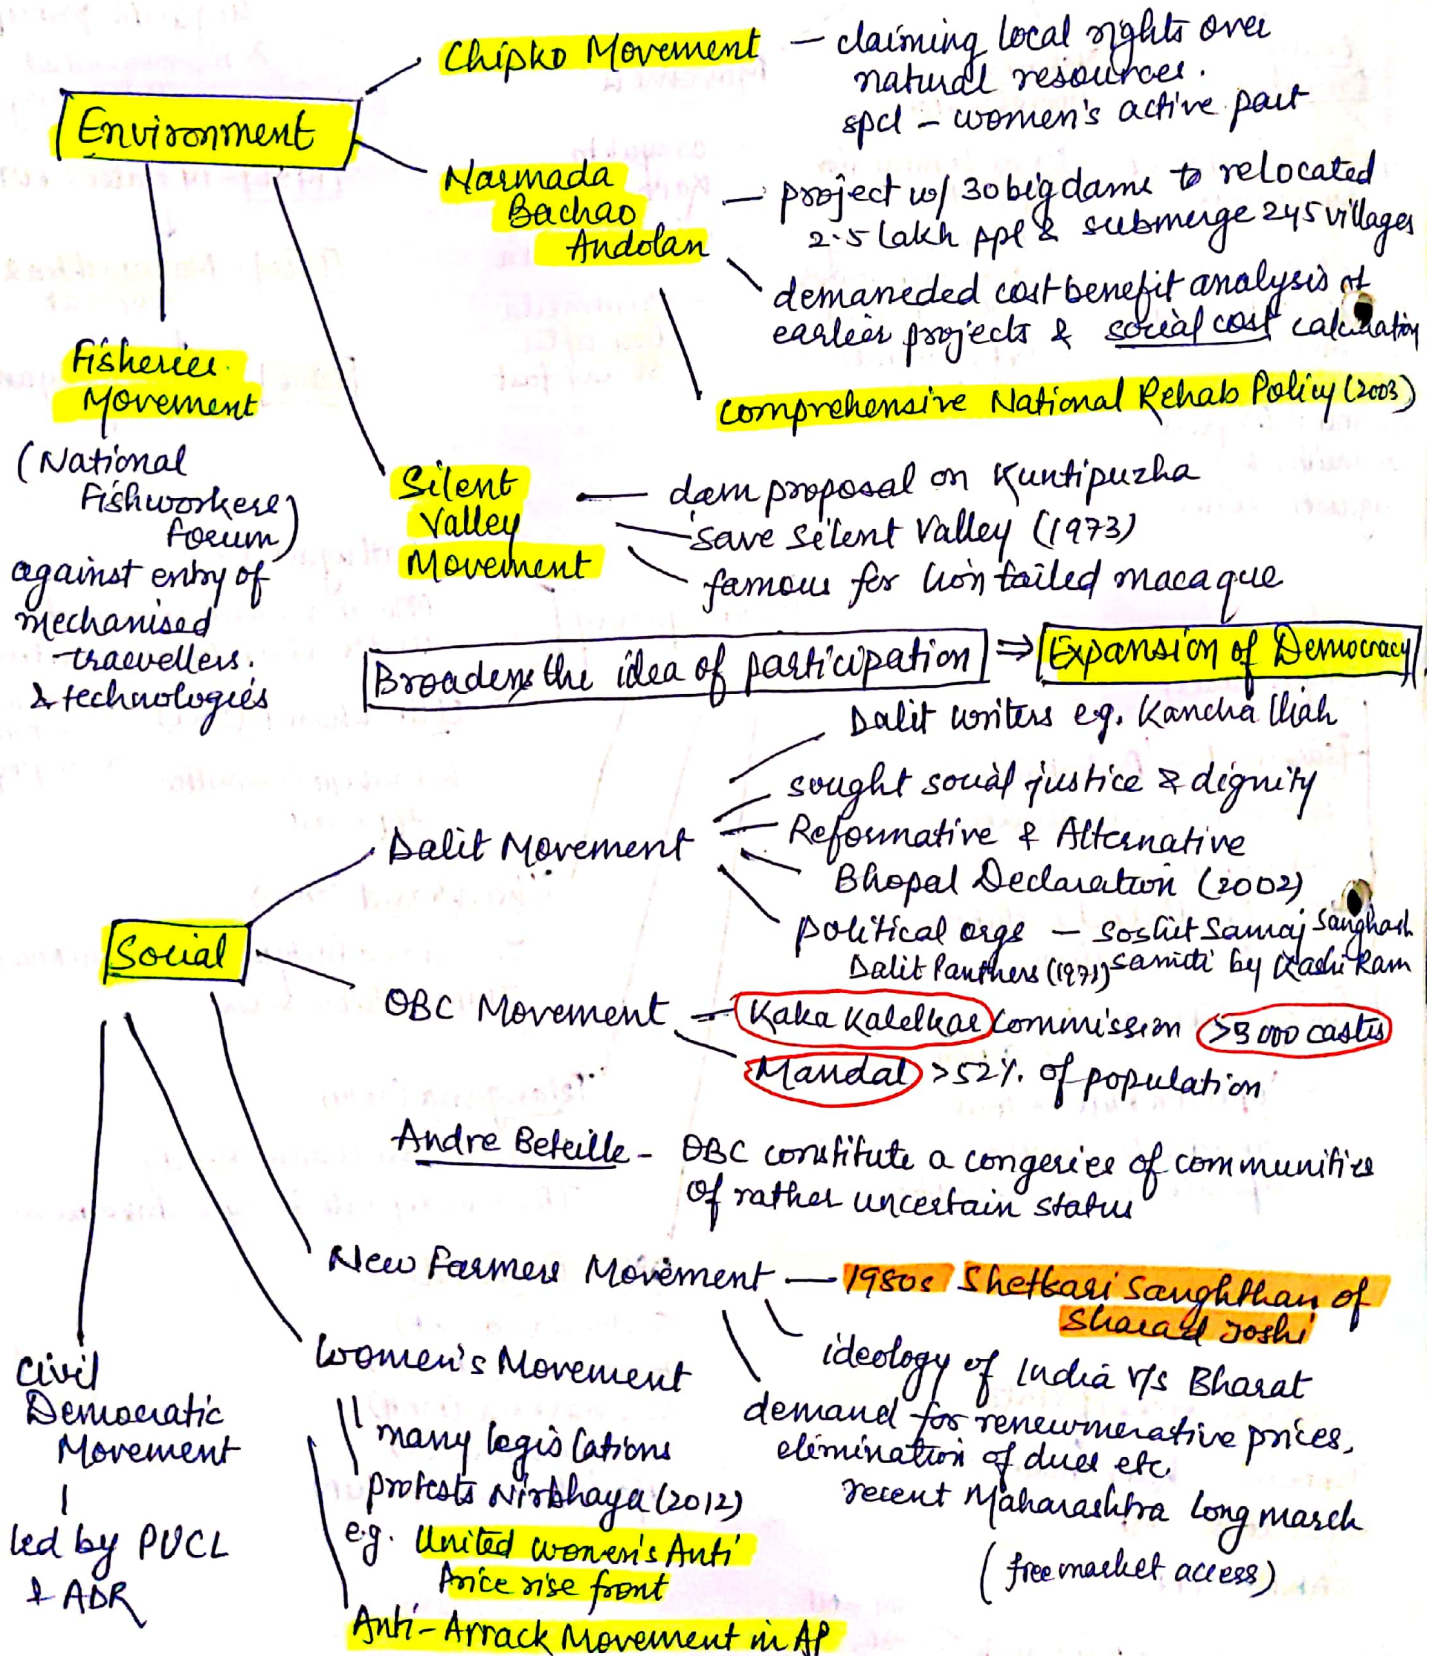 Chipko Movement – claiming local rights over
natural resources.
spcl – women's active part
Environment
Narmada
Bachao
Andolan
– project w/ 30 big dams to relocated
2.5 lakh ppl & submerge 245 villages
demaneded cost benefit analysis of
earlier projects & social cost calculation
Comprehensive National Rehab Policy (2003)
Fisheries
Movement
(National
Fishworkers
Forum)
against entry of
mechanised
traewellers.
& technologies
Silent
Valley
Movement
– dam proposal on Kuntipuzha
save Silent Valley (1973)
famous for lion tailed macaque
Broadens the idea of participation ⇒ Expansion of Democracy
Social
Dalit Movement
Dalit writers eg. Kancha Iliah
sought social justice & dignity
Reformative & Alternative
Bhopal Declaration (2002)
political orgs – Soshit Samaj Sanghash
Dalit Panthers (1973) samiti by Kashi Ram
OBC Movement – Kaka Kalelkar Commission >3000 castes
Mandal >52% of population
Andre Beteille – OBC constitute a congeries of communities
of rather uncertain status
New Farmers Movement – 1980s Shetkari Sanghthan of
Sharad Joshi
ideology of India v/s Bharat
demand for renewmerative prices,
elimination of dues etc.
recent Maharashtra Long march
(free market access)
Women's Movement
many legislations
protests Nirbhaya (2012)
e.g. United women's Anti
Price rise front
Anti-Arrack Movement in AP
Civil
Democratic
Movement
led by PUCL
& ADR